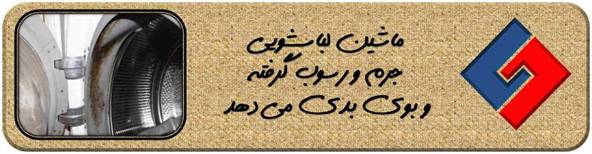 ماشین لباسشویی
جرم و رسوب گرفته
و بوی بدی می دهد